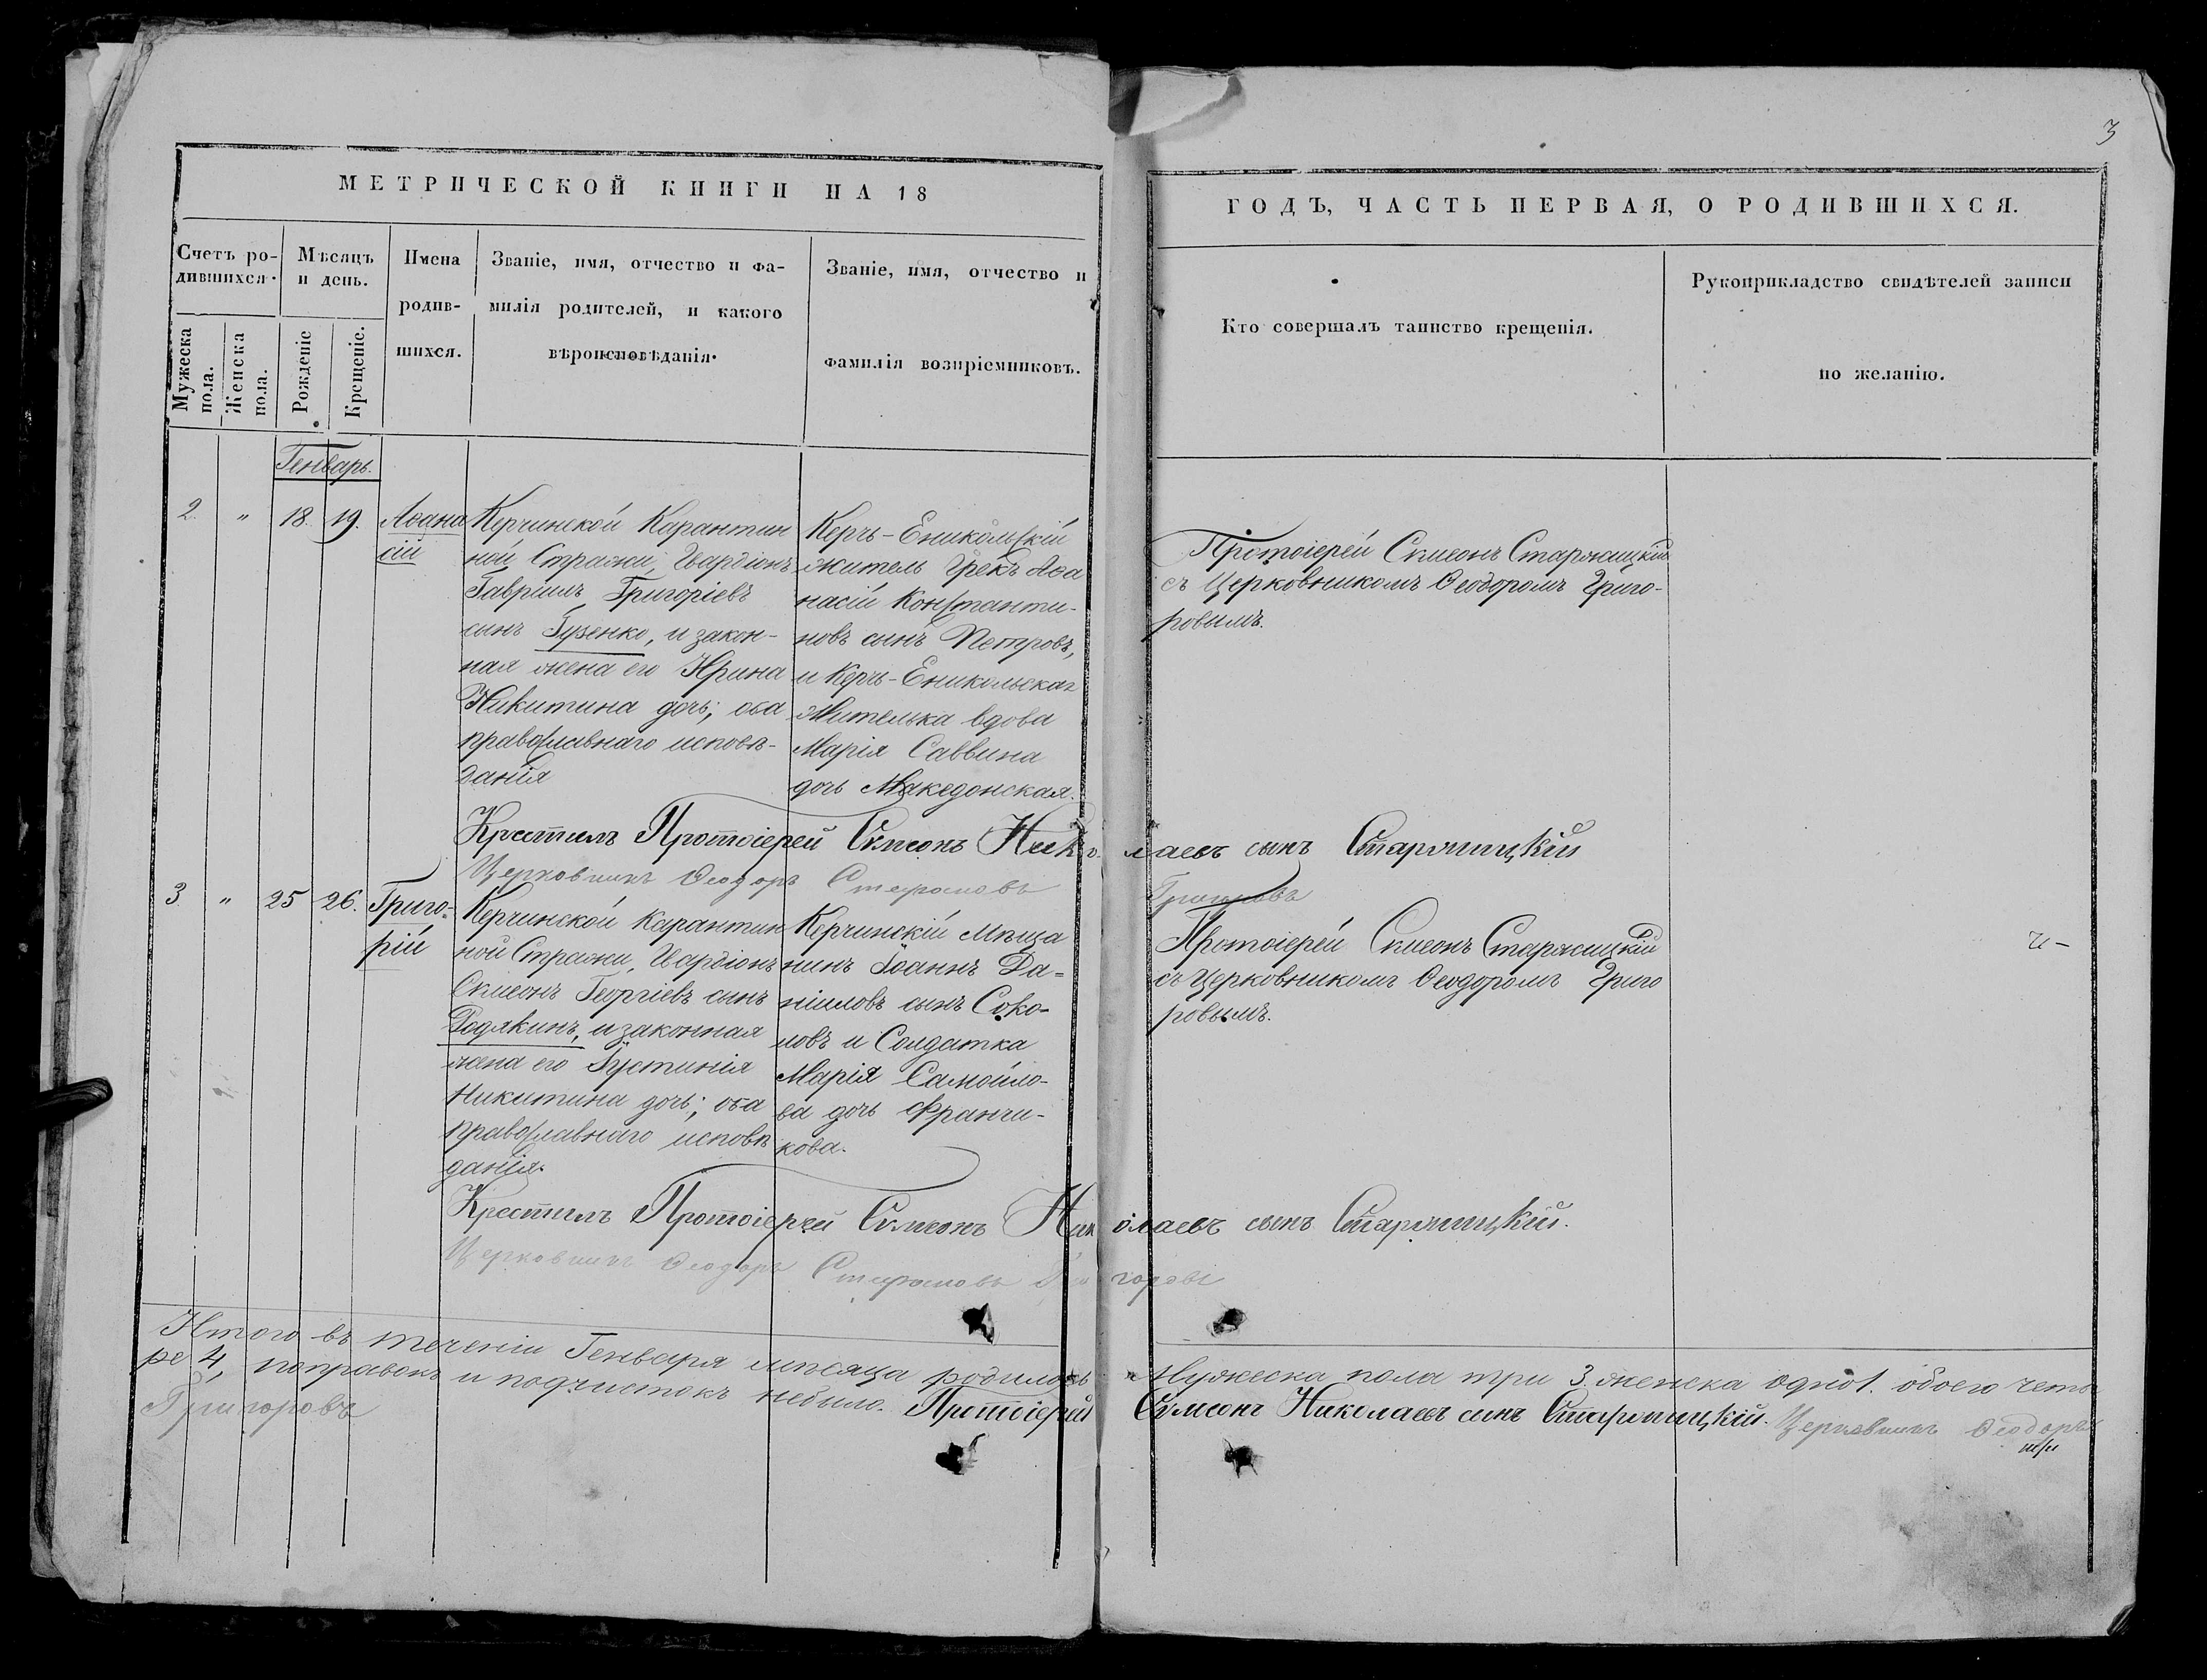 3
МЕТРИЧЕСКОЙ КНИГИ НА 18
ГОДЪ, ЧАСТЬ ПЕРВАЯ, О РОДИВШИХСЯ.
Счетъ ро-
дившихся.
Мужеска
пола.
Женска
пола.
Мѣсяцъ
и день.
Рожденіе
Крещеніе.
Имена
родив-
шихся.
Званіе, имя, отчество и фа-
милія родителей, и какого
вѣроисповѣданія.
Званіе, имя, отчество и
фамилія воспріемниковъ.
Кто совершалъ таинство крещенія.
Рукоприкладство свидѣтелей записи
по желанію.
Генварь.
2. " 18. 19.
Аѳана
сій
Керчинской Карантин
ной Стражи, Гвардіонъ
Гавріилъ Григоріевъ
сынъ Гузенко, и закон-
ная жена его Ирина
Никитина дочь; оба
православнаго исповѣ-
данія
Керчь-Еникольскій
житель Грекъ Аѳа
насій Константи-
новъ сынъ Петровъ,
и Керчь-Еникольская
жителька вдова
Марія Саввина
дочь Македонская.
Протоіерей Симеонъ Старжицкій
съ Церковникомъ Ѳеодоромъ Григо-
ровымъ.
Крестилъ Протоіерей Симеонъ Николаевъ сынъ Старжицкій
Церковникъ Ѳеодоръ Стефановъ Григоровъ
3. " 25 26.
Григо-
рій
Керчинской Карантин
ной Стражи, Гвардіонъ
Симеонъ Георгіевъ сынъ
Редякинъ, и законная
жена его Іустинія
Никитина дочь; оба
православнаго исповѣ
данія.
Керчинскій Мѣща
нинъ Іоаннъ Да-
ніиловъ сынъ Соко-
ловъ и Солдатка
Марія Самойло-
ва дочь Франчи-
кова.
Протоіерей Симеонъ Старжицкій
съ Церковникомъ Ѳеодоромъ Григо
ровымъ.
Крестилъ Протоіерей Симеонъ Николаевъ сынъ Старжицкій.
Церковникъ Ѳеодоръ Стефановъ Григоровъ
Итого въ теченіи Генваря мѣсяца родилось Мужеска пола три 3. женска одно 1. обоего четы
ре 4, поправокъ и подчистокъ небыло. Протоіерей Симеонъ Николаевъ сынъ Старжицкій. Церковникъ Ѳеодоръ
Григоровъ